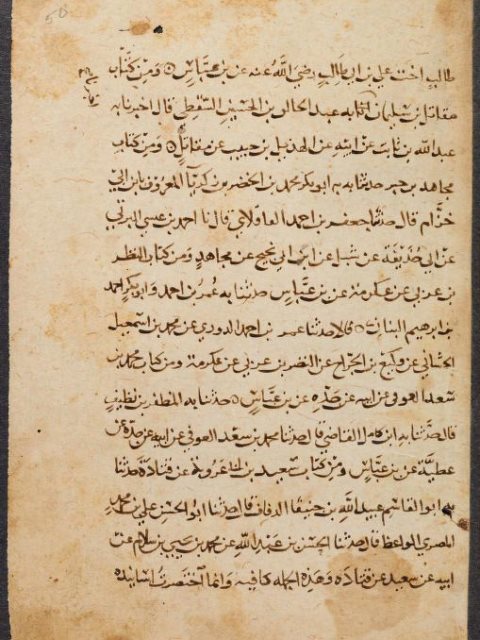 طالب اخت علي بن ابي طالب رضي الله عنه عن بن عباس ومن كتاب
مقاتل بن سليمان انا به عبد الخالق بن الحسين السقطي قال اخبرنا به
عبد الله بن ثابت عن ابيه عن الهذيل بن حبيب عن مقاتل ومن كتاب
مجاهد بن جبر حدثنا به ابو بكر محمد بن الخضر بن زكريا المعروف بابن ابي
خزام قال حدثنا جعفر بن احمد قال نا احمد بن عيسي البرتي
عن ابي حذيفة عن شبل عن ابن ابي نجيح عن مجاهد ومن كتاب النضر
بن عربي عن عكرمة عن بن عباس حدثنا به عمر بن احمد وابو بكر احمد
بن ابرهيم قالا حدثنا عمر بن احمد الدوري عن محمد بن اسمعيل
الحساني عن وكيع بن الجراح عن النضر بن عربي عن عكرمة ومن كتاب محمد بن
سعد العوفي عن ابيه عن جده عن بن عباس حدثنا به المظفر بن نظيف
قال حدثنا به ابن كامل القاضي قال حدثنا محمد بن سعد العوفي عن ابيه عن جده عن
عطية عن بن عباس ومن كتاب سعيد بن ابي عروبة عن قتادة حدثنا
به ابو القاسم عبيد الله بن جنيقا الدقاق قال حدثنا ابو الحسن علي بن محمد
المصري الواعظ قال حدثنا الحسن بن عبد الله عن محمد بن يحيي بن سلام عن
ابيه عن سعيد عن قتادة وهذه الجمله كافيه وانما اختصرت اسانيده